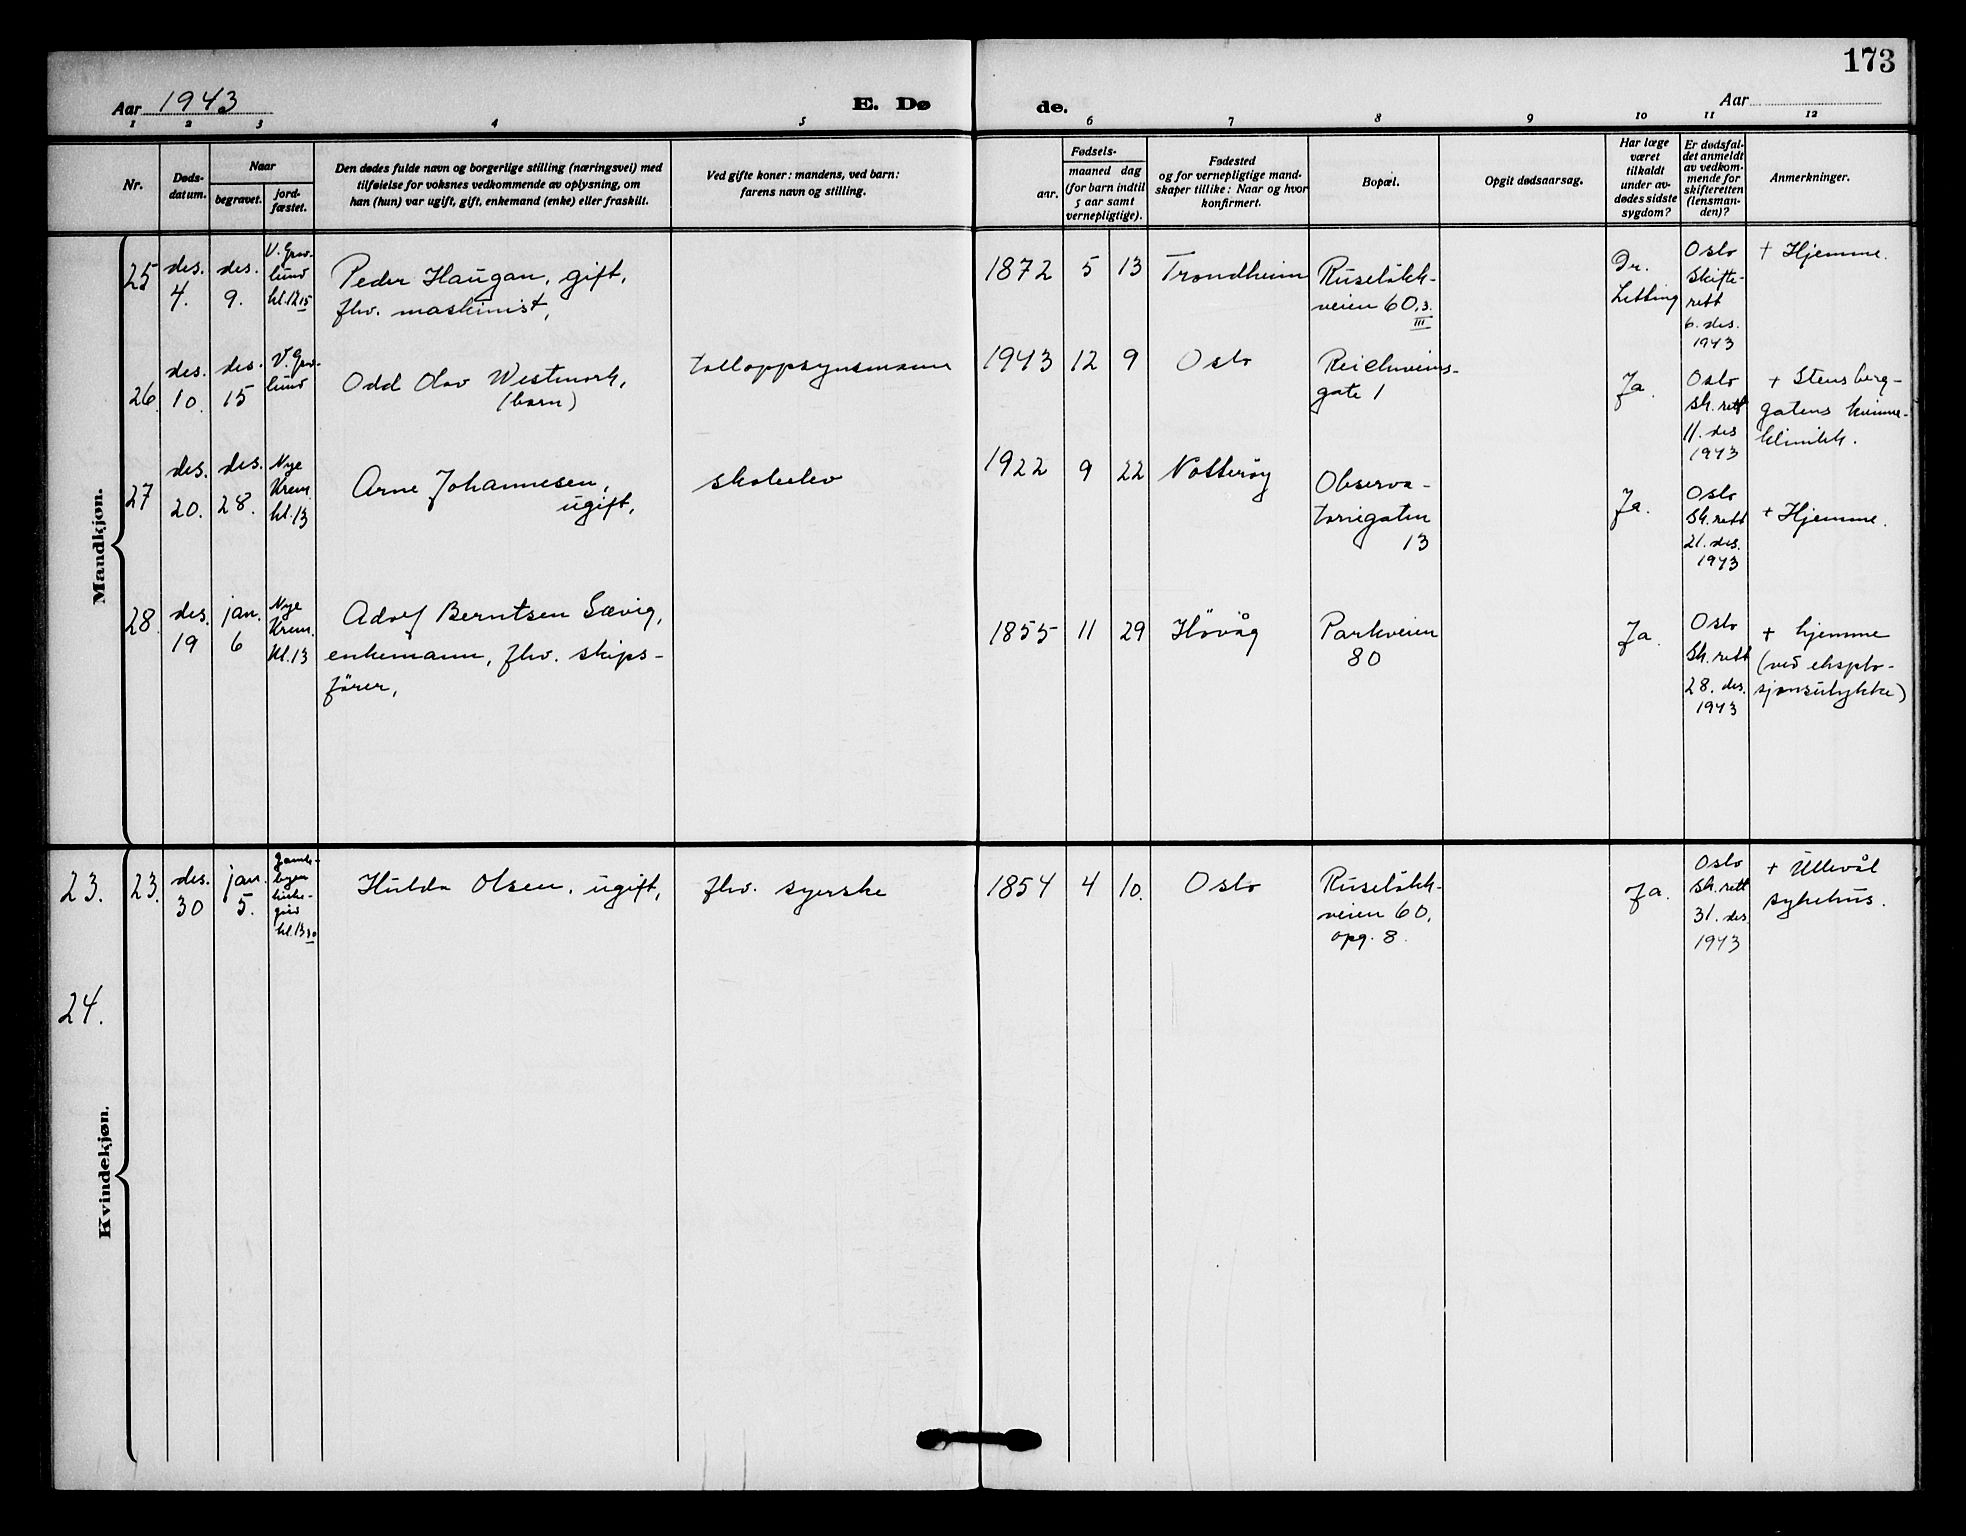 173
Aar 1943
E. Dø
de.
Aar
1 2 3 4 5 6 7 8 9 10 11 12
Nr.
Døds-
datum.
Naar
begravet.
jord-
fæstet.
Den dødes fulde navn og borgerlige stilling (næringsvei) med
tilføielse for voksnes vedkommende av oplysning, om
han (hun) var ugift, gift, enkemand (enke) eller fraskilt.
Ved gifte koner: mandens, ved barn:
farens navn og stilling.
Fødsels-
aar.
maaned dag
(for barn indtil
5 aar samt
vernepligtige).
Fødested
og for vernepligtige mand-
skaper tillike: Naar og hvor
konfirmert.
Bopæl.
Opgit dødsaarsag.
Har læge
været
tilkaldt
under av-
dødes sidste
sygdom?
Er dødsfal-
det anmeldt
av vedkom-
mende for
skifteretten
(lensman-
den)?
Anmerkninger.
Mandkjøn.
25
des.
4.
des.
9.
V. Grav-
lund
kl. 12 15
Peder Haugan, gift,
fhv. maskinist,
1872 5 13
Trondheim
Ruseløkk-
veien 60, 3.
III
Dr.
Oslo
Skifte-
rett
6. des.
1943
+ Hjemme.
26.
des.
10.
des.
15
V. Grav-
lund
Odd Olav Westmark,
(barn)
tolloppsynsmann
1943 12 9
Oslo
Reichweins-
gate 1
Ja.
Oslo
sk. rett
11. des
1943
+ Stensberg-
gatens kvinne-
klinikk.
27
des.
20.
des.
28.
Nye
Krem.
kl. 13
Arne Johannesen,
ugift,
skoleelev
1922 9 22
Nøtterøy
Observa-
toriegaten
13
Ja.
Oslo
Sk. rett
21. des.
1943
+ Hjemme.
28.
des.
19
jan.
6
Nye
Krem.
kl. 13
Adolf Berntsen Sævig,
enkemann, fhv. skips-
fører,
1855 11 29
Høvåg
Parkveien
80
Ja.
Oslo
Sk. rett
28. des.
1943
+ hjemme
(ved eksplo-
sjonsulykke)
Kvindekjøn.
23. 23.
des.
30
jan.
5.
Gamle-
byen
kirke-
gård
kl. 13 30
Hulda Olsen, ugift,
fhv. syerske
1854 4 10.
Oslo
Ruseløkk-
veien 60,
opg. 8.
Ja.
Oslo
Sk. rett
31. des
1943
+ Ullevål
sykehus.
24.